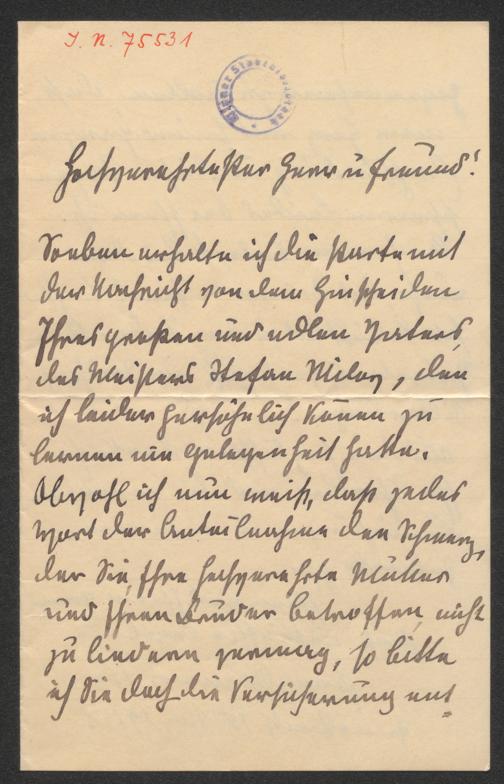 J. N. 75531
Wiener Stadtbibliothek
Hochverehrtester Herr u Freund!
Soeben erhalte ich die Parte mit
der Nachricht von dem Hinscheiden
Ihres großen und edlen Vaters,
des Meisters Stefan Milow, den
ich leider persöhnlich könen zu
lernen nie Gelegenheit hatte.
Obwohl ich nun weiß, daß jedes
Wort der Anteilnahme den Schmerz,
der Sie, Ihre hochverehrte Mutter
und Ihren Bruder betroffen, nicht
zu lindern vermag, so bitte
ich Sie doch die Versicherung ent=